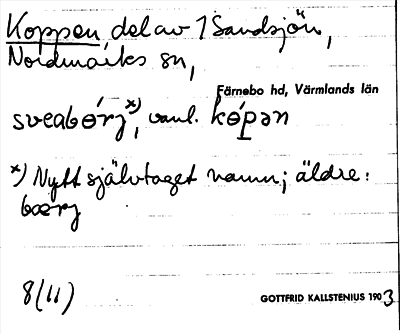 Koppen del av 1 Sandsjön,
Nordmarks sn,
Färnebo hd, Värmlands län
sveabérj x), vanl. kópən
x) Nytt självtaget namn; äldre:
bærj
8(11)
GOTTFRID KALLSTENIUS 1903